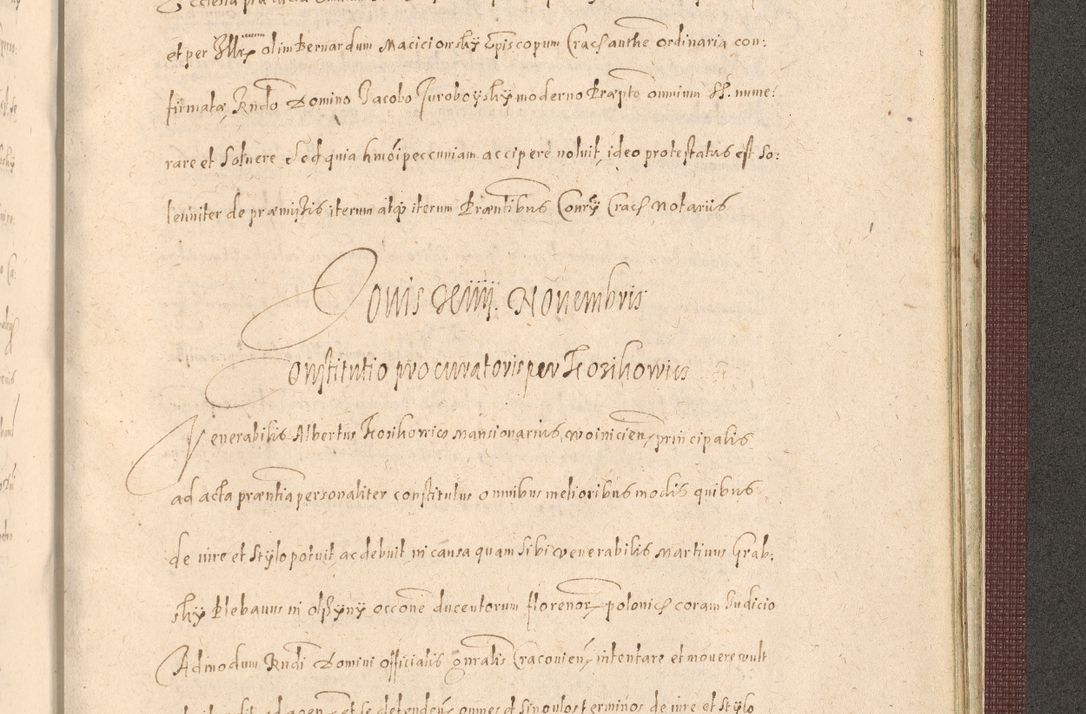 et per Illrem olim Bernardum Maciciowsky Episcopum Crac authe ordinaria con:
firmatæ, Rndo Domino Jacobo Juroboysky moderno Præpto omnium ff. nume:
rare et Soluere Sed quia hmoi peccuniam accipere noluit, ideo protestatus est So:
lenniter de præmissis iterum atq iterum Præntibus Conry Crac Notariis
Jouis Xiiij. Nouembris
Constitutio procuratoris per Kosikowics
Venerabilis Albertus Kosikowics Mansionarius Woinicien, principalis
ad acta præntia personaliter constitutus omnibus melioribus modis quibus
de iure et Stylo potuit ac debuit in causa quam sibi Venerabilis Martinus Grab:
sky Plebanus in Olssyny occone ducentorum florenor polonic coram Iudicio
Admodum Rndi Domini Officialis Gnralis Cracouien, intentare et mouere vult
et se defenden, omnes et singulos terminos de iure et Stylo